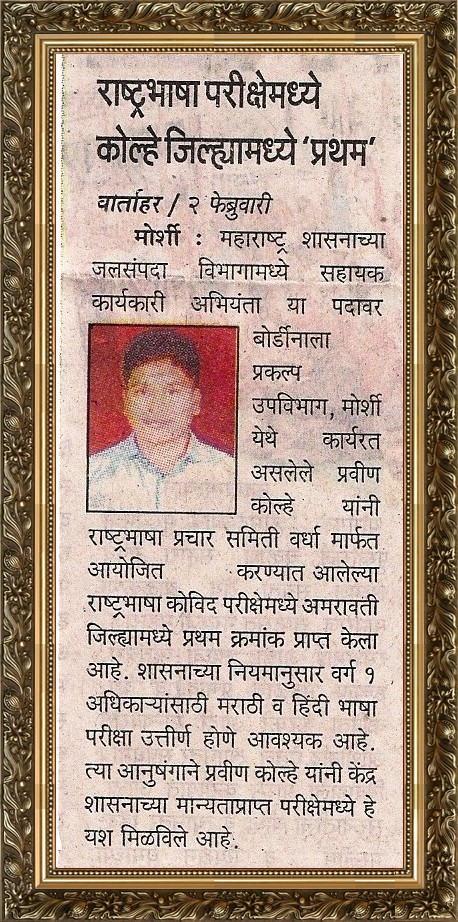 राष्ट्रभाषा परीक्षेमध्ये
कोल्हे जिल्ह्यामध्ये ‘प्रथम’
वार्ताहर / २ फेब्रुवारी
मोर्शी : महाराष्ट्र शासनाच्या
जलसंपदा विभागामध्ये सहायक
कार्यकारी अभियंता या पदावर
बोर्डीनाला
प्रकल्प
उपविभाग, मोर्शी
येथे कार्यरत
असलेले प्रवीण
कोल्हे यांनी
राष्ट्रभाषा प्रचार समिती वर्धा मार्फत
आयोजित करण्यात आलेल्या
राष्ट्रभाषा कोविद परीक्षेमध्ये अमरावती
जिल्ह्यामध्ये प्रथम क्रमांक प्राप्त केला
आहे. शासनाच्या नियमानुसार वर्ग १
अधिकाऱ्यांसाठी मराठी व हिंदी भाषा
परीक्षा उत्तीर्ण होणे आवश्यक आहे.
त्या आनुषंगाने प्रवीण कोल्हे यांनी केंद्र
शासनाच्या मान्यताप्राप्त परीक्षेमध्ये हे
यश मिळविले आहे.